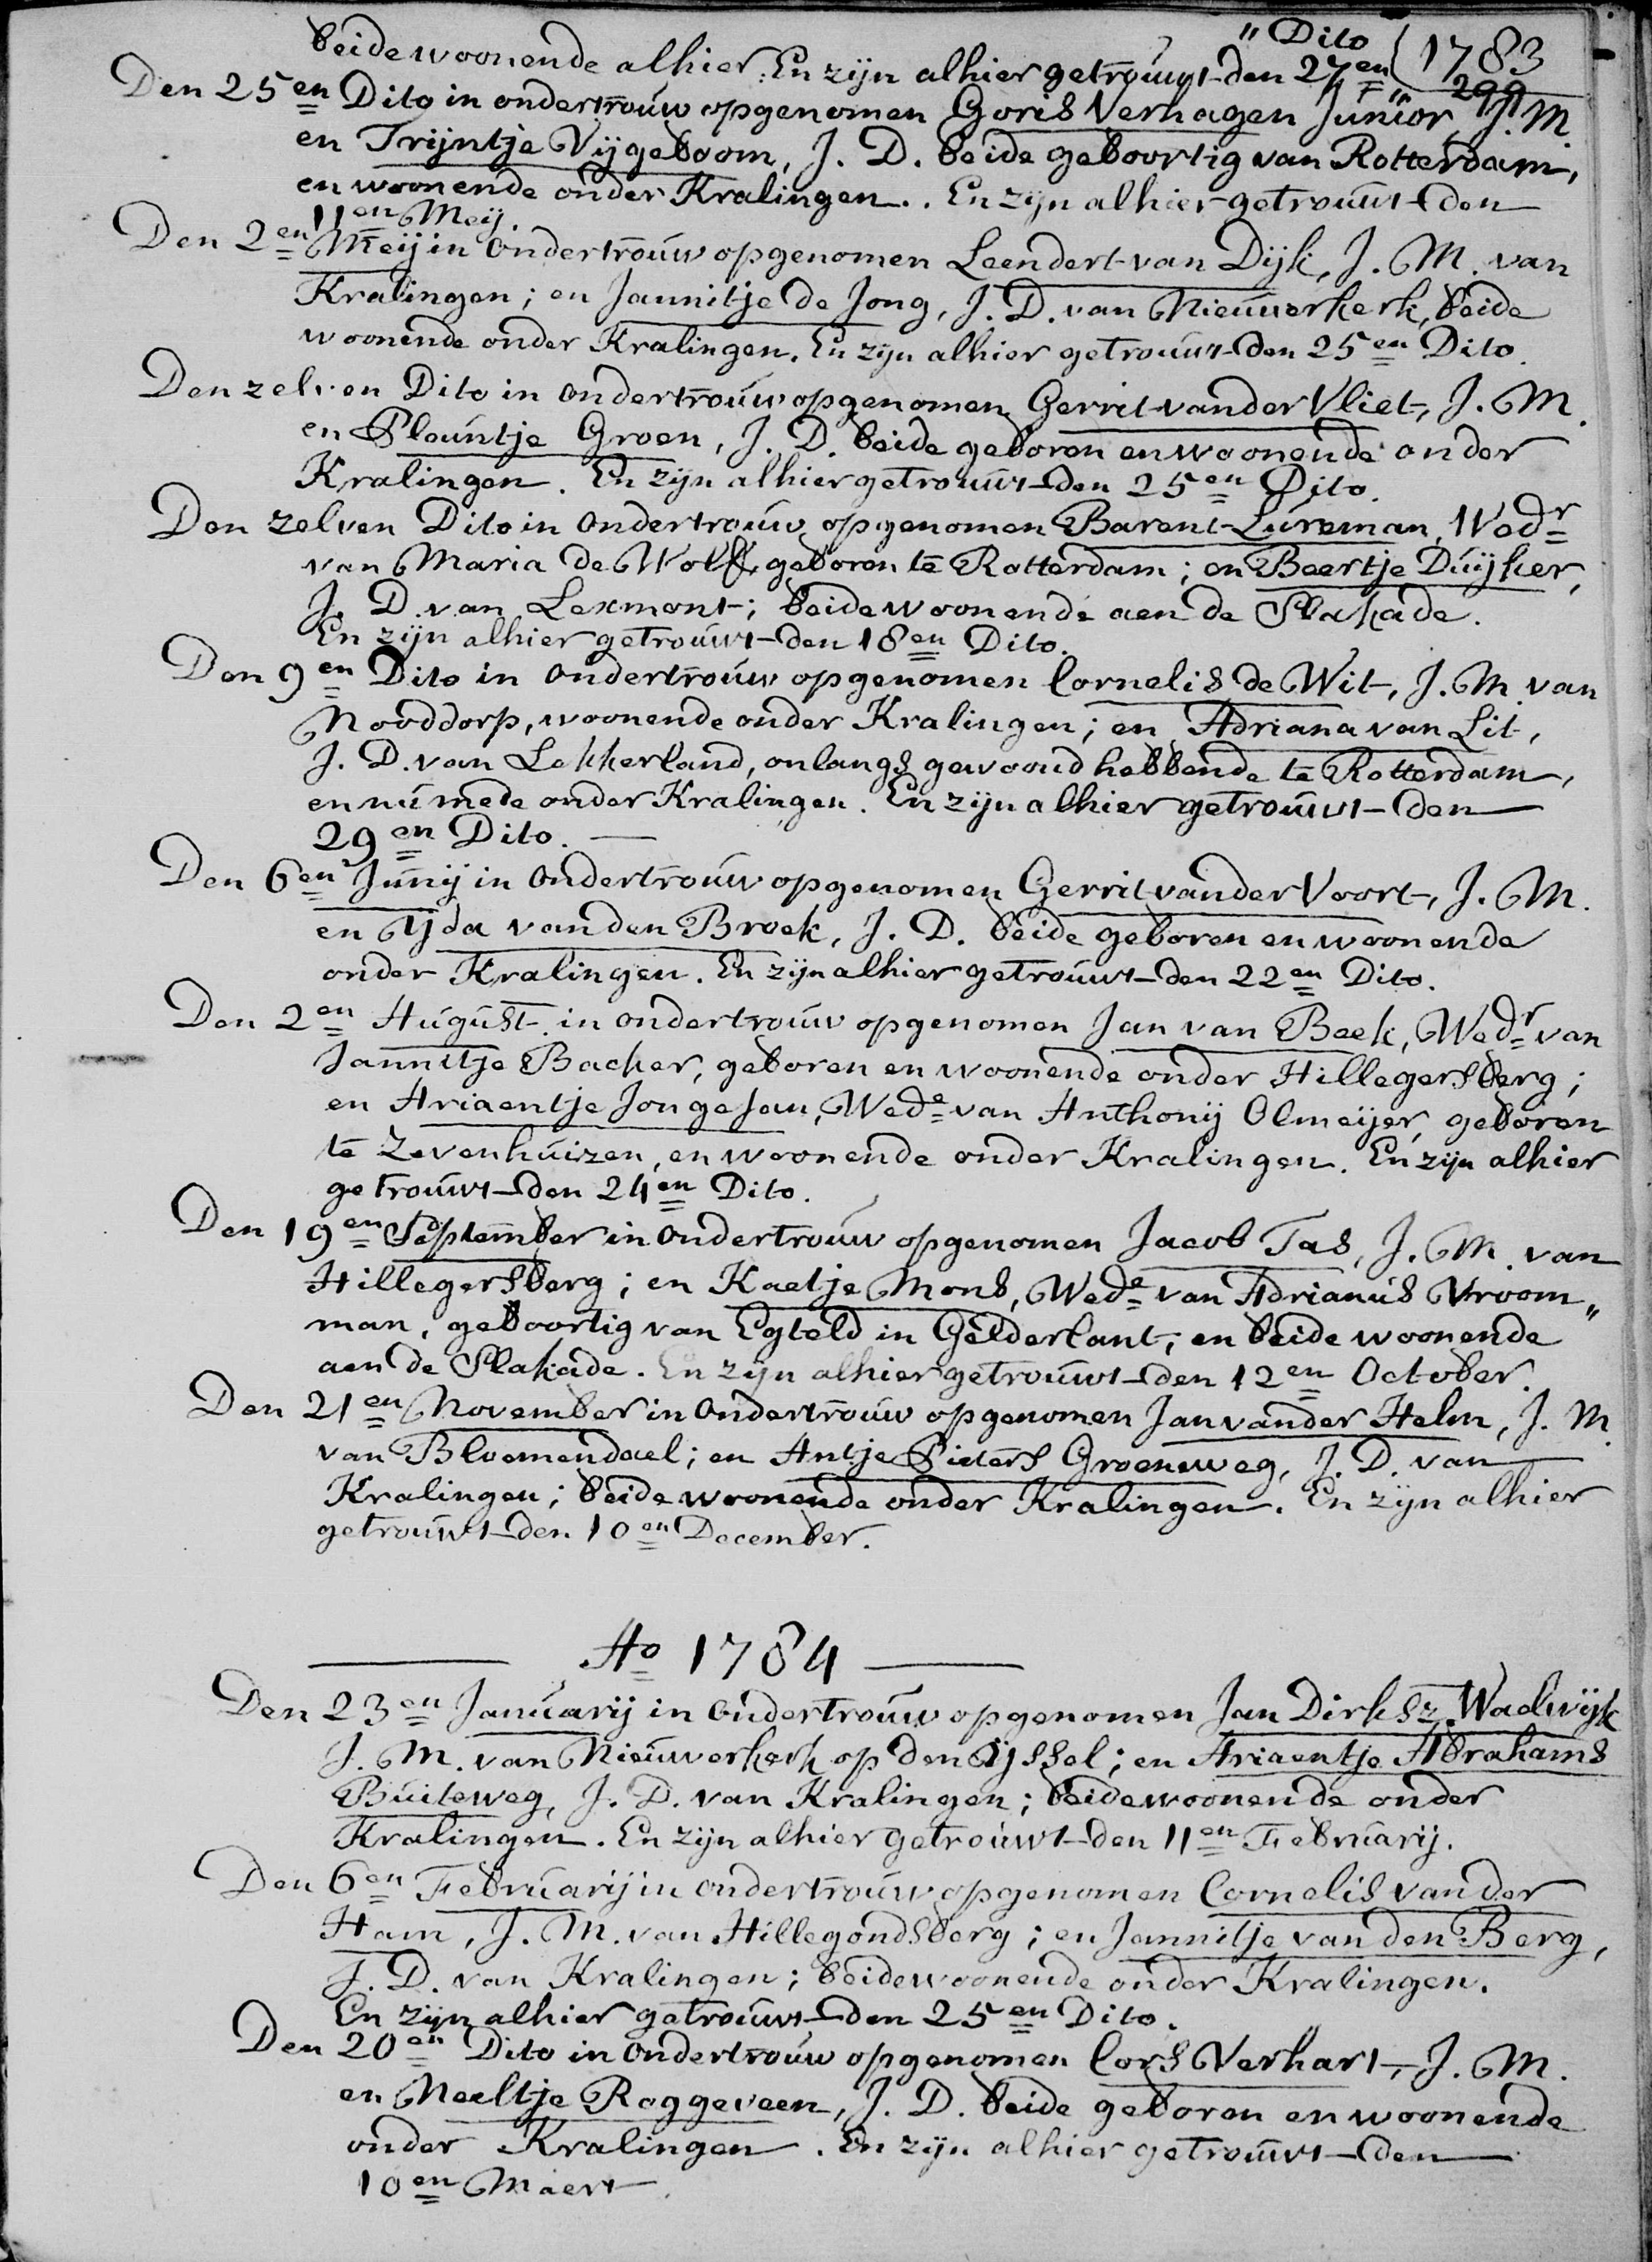 1783
299
„ Dito
beide woonende alhier. En zijn alhier getrouwt den 27en „
Den 25en Dito in ondertrouw opgenomen Goris Verhagen Junior, J. M.
en Trijntje Vijgeboom, J. D. beide geboortig van Rotterdam,
en woonende onder Kralingen. En zijn alhier getrouwt den
11en Meij.
Den 2en Meij in Ondertrouw opgenomen Leendert van Dijk, J. M. van
Kralingen; en Jannitje de Jong, J. D. van Nieuwerkerk, beide
woonende onder Kralingen. En zijn alhier getrouwt den 25en Dito.
Den zelven Dito in Ondertrouw opgenomen Gerrit van der Vliet, J. M.
en Pleuntje Groen, J. D. beide geboren en woonende onder
Kralingen. En zijn alhier getrouwt den 25en Dito.
Den zelven Dito in Ondertrouw opgenomen Barent Lureman, Wedr
van Maria de Wolff, geboren te Rotterdam; en Beertje Duijker,
J. D. van Lexmont; beide woonende aen de Plakade.
En zijn alhier getrouwt den 18en Dito.
Den 9en Dito in Ondertrouw opgenomen Cornelis de Wit, J. M. van
Nooddorp, woonende onder Kralingen; en Adriana van Lit,
J. D. van Lekkerland, onlangs gewoond hebbende te Rotterdam,
en nu mede onder Kralingen. En zijn alhier getrouwt den
29en Dito.
Den 6en Junij in Ondertrouw opgenomen Gerrit van der Voort, J. M.
en Yda van den Broek, J. D. beide geboren en woonende
onder Kralingen. En zijn alhier getrouwt den 22en Dito.
Den 2en August in ondertrouw opgenomen Jan van Beek, Wedr van
Jannitje Backer, geboren en woonende onder Hillegersberg;
en Ariaentje Jongejan, Wede van Anthonij Olmeijer, geboren
te Zevenhuizen, en woonende onder Kralingen. En zijn alhier
getrouwt den 24en Dito.
Den 19en September in Ondertrouw opgenomen Jacob Tas, J. M. van
Hillegersberg; en Kaetje Mons, Wede van Adrianus Vroom„
man, geboortig van Egteld in Gelderlant; en beide woonende
aen de Plakade. En zijn alhier getrouwt den 12en October.
Den 21en November in Ondertrouw opgenomen Jan van der Helm, J. M.
van Bloemendael; en Antje Pieters Groenweg, J. D. van
Kralingen; beide woonende onder Kralingen. En zijn alhier
getrouwt den 10en December.
Ao 1784
Den 23en Januarij in Ondertrouw opgenomen Jan Dirksz. Wadwijk
J. M. van Nieuwerkerk op den Yssel; en Ariaentje Abrahams
Buiteweg, J. D. van Kralingen; beide woonende onder
Kralingen. En zijn alhier getrouwt den 11en Februarij.
Den 6en Februarij in ondertrouw opgenomen Cornelis van der
Ham, J. M. van Hillegondsberg; en Jannitje van den Berg,
J. D. van Kralingen; beide woonende onder Kralingen.
En zijn alhier getrouwt den 25en Dito.
Den 20en Dito in Ondertrouw opgenomen Cors Verhart, J. M.
en Neeltje Roggeveen, J. D. beide geboren en woonende
onder Kralingen. En zijn alhier getrouwt den
10en Maert.